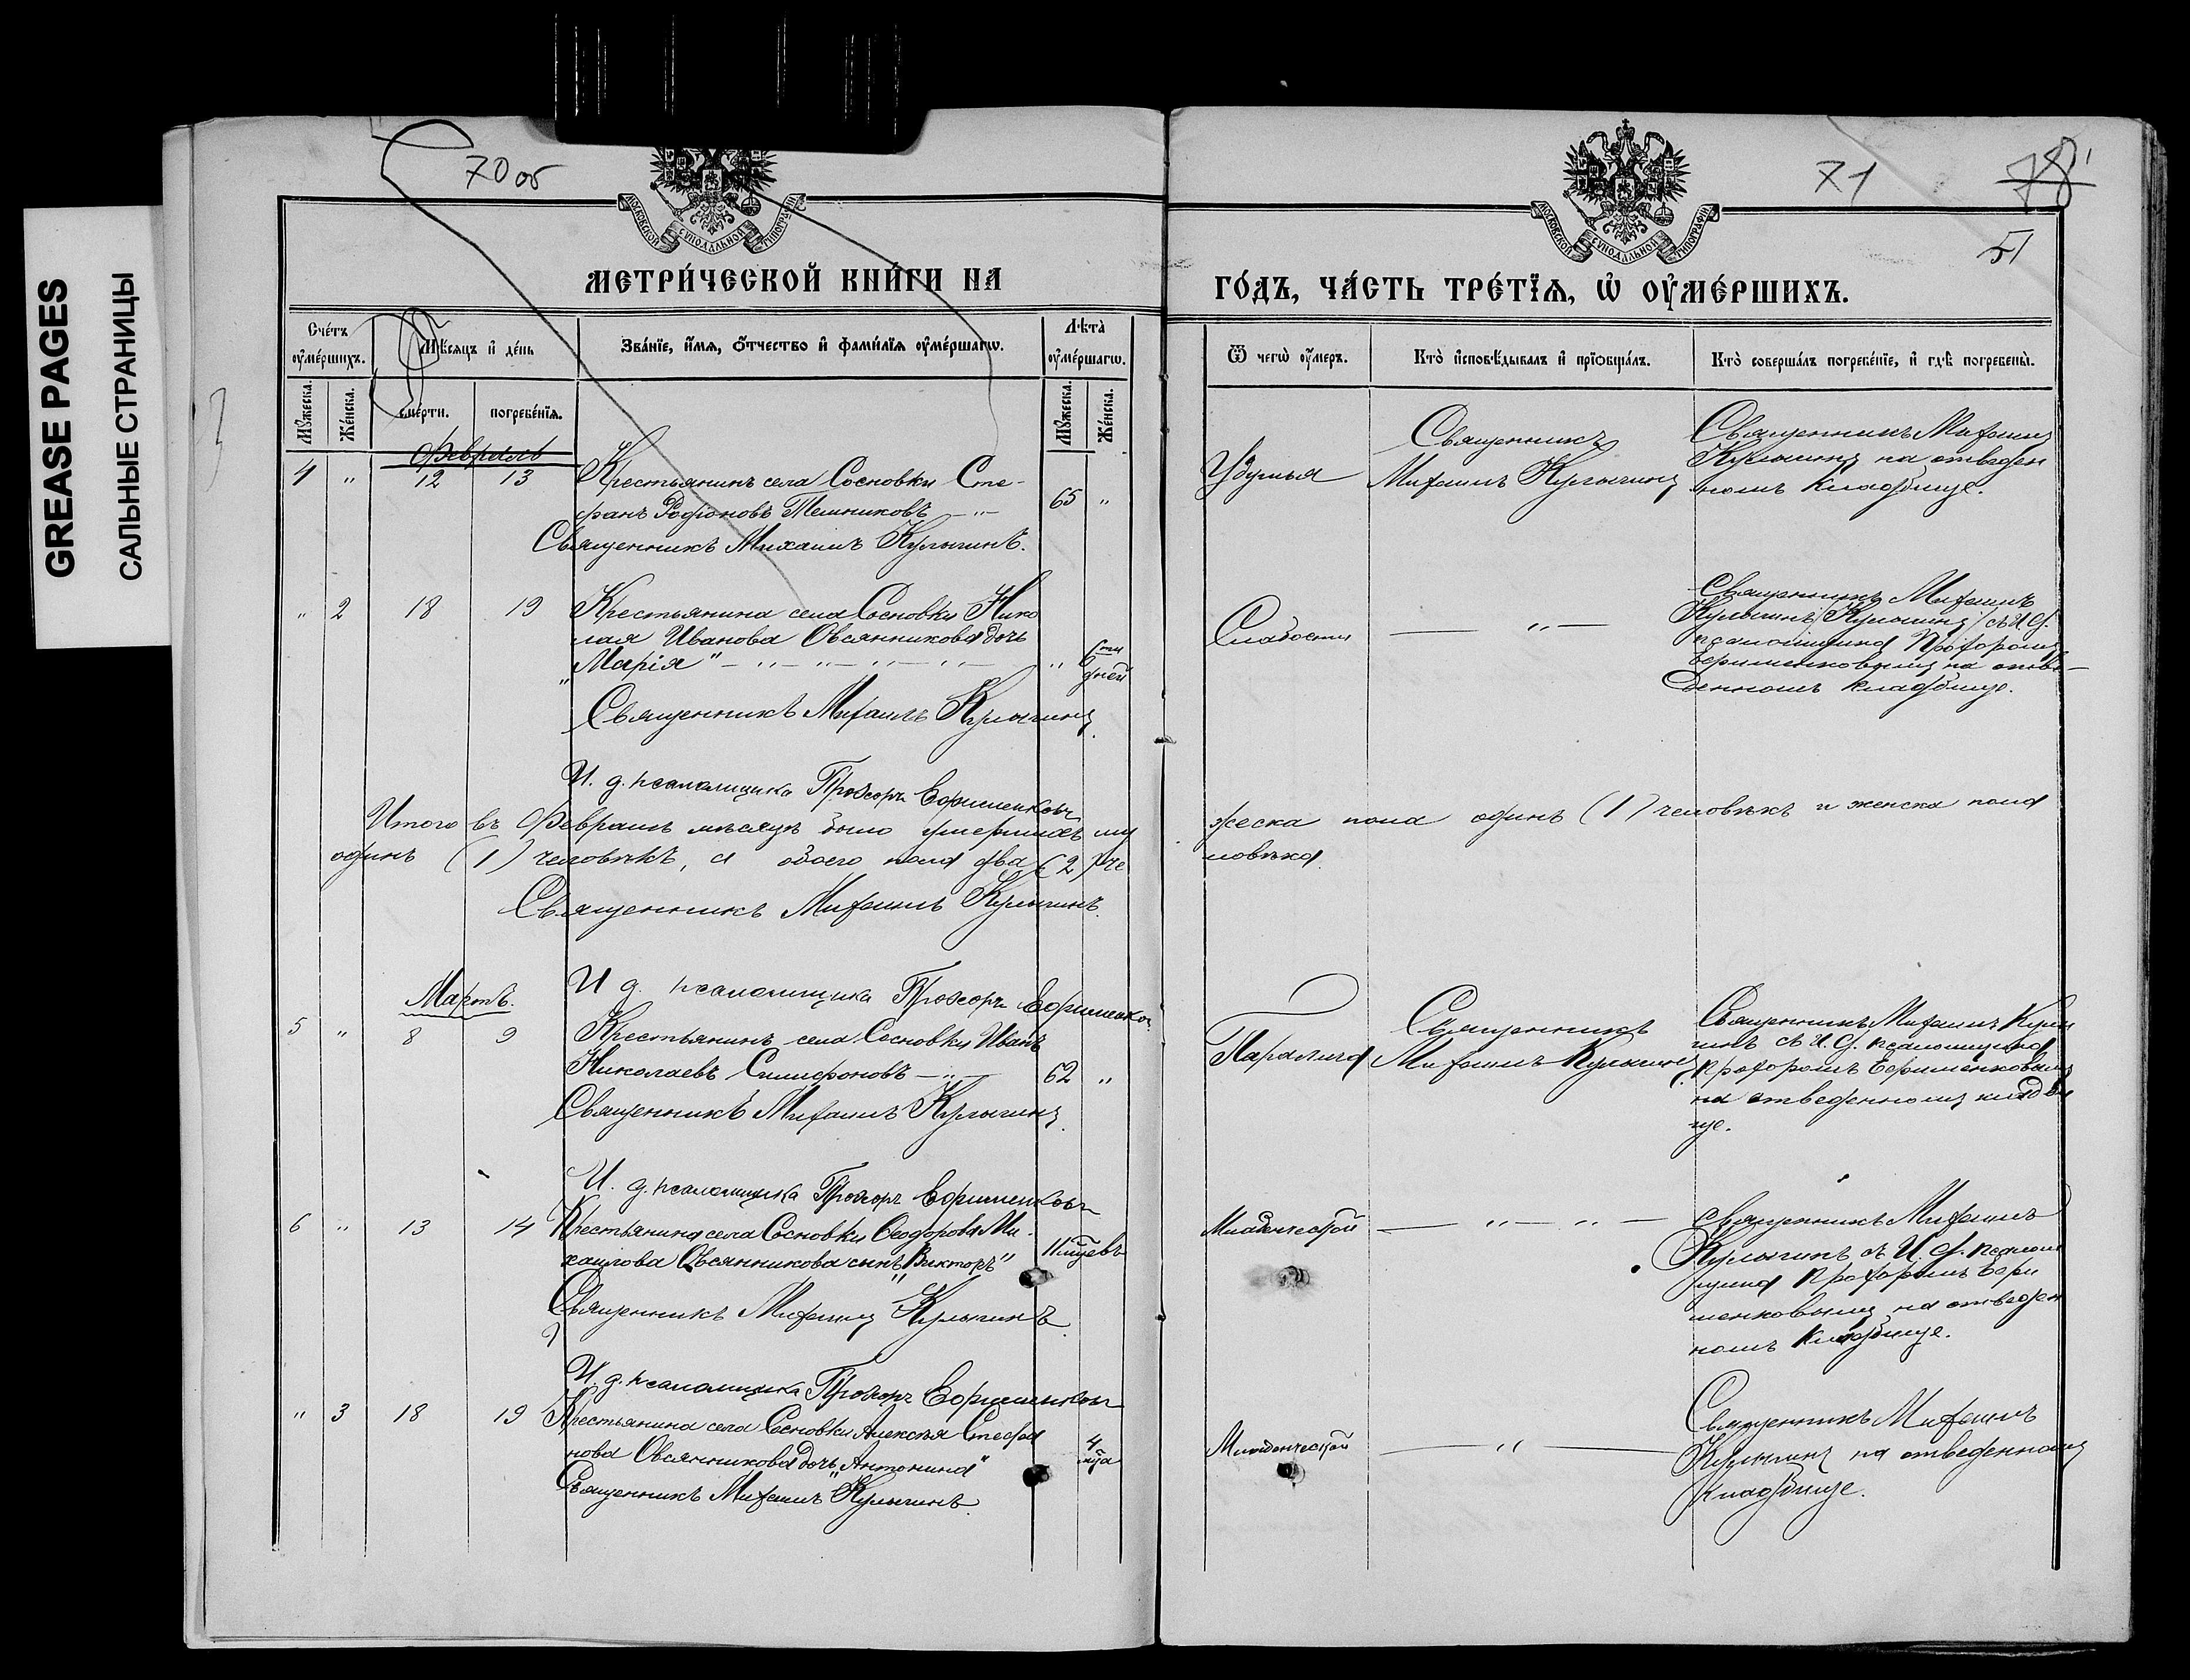 GREASE PAGES
САЛЬНЫЕ СТРАНИЦЫ
70 об
МОСКОВСКОЙ СУНОДАЛЬНОЙ ТИПОГРАФІИ
МЕТРИ́ЧЕСКОЙ КНИ́ГИ НА
Сче́тъ ᲂу҆ме́ршихъ.
Мѣ́сяцъ и҆ де́нь
Зва́нїе, и҆́мѧ, ѻ҆́тчество и҆ фами́лїѧ ᲂу҆ме́ршагѡ.
Лѣ́та ᲂу҆ме́ршагѡ.
Мꙋ́жеска.
Же́нска.
сме́рти.
погребе́нїѧ.
Мꙋ́жеска.
Же́нска.
Февраль
4 " 12 13 Крестьянинъ села Сосновки Сте-
фанъ Родіоновъ Темниковъ — " — 65 "
Священникъ Михаилъ Кулыгинъ.
" 2 18 19 Крестьянина села Сосновки Нико
лая Иванова Овсянникова дочь
"Марія" — " — " — " — " — " 6 ти дней
Священникъ Михаилъ Кулыгинъ.
И. д. псаломщика Прохоръ Ефименковъ
Итого въ Февралѣ мѣсяцѣ было умершихъ му
одинъ (1) человѣкъ, а обоего пола два (2) че
Священникъ Михаилъ Кулыгинъ.
И д. псаломщика Прохоръ Ефименковъ
Мартъ.
5 " 8 9 Крестьянинъ села Сосновки Иванъ
Николаевъ Симфоновъ — " — 62 "
Священникъ Михаилъ Кулыгинъ.
И. д. псаломщика Прохоръ Ефименковъ
6 " 13 14 Крестьянина села Сосновки Ѳеодора Ми-
хаилова Овсянникова сынъ "Викторъ"
Священникъ Михаилъ Кулыгинъ.
И. д. псаломщика Прохоръ Ефименковъ
" 3 18 19 Крестьянина села Сосновки Алексѣя Стефа
нова Овсянникова дочь "Антонина" 4 мца
Священникъ Михаилъ Кулыгинъ.
71
78
51
МОСКОВСКОЙ СУНОДАЛЬНОЙ ТИПОГРАФІИ
ГО́ДЪ, ЧА́СТЬ ТРЕ́ТЇѦ, Ѡ҆ ОУ҆МЕ́РШИХЪ.
Ѿ чегѡ̀ ᲂу҆́меръ.
Кто̀ и҆сповѣ́дывалъ и҆ прїѡбща́лъ.
Кто̀ соверша́лъ погребе́нїе, и҆ гдѣ̀ погребены̀.
Удушья
Священникъ
Михаилъ Кулыгинъ
Священникъ Михаилъ
Кулыгинъ на отведен
номъ кладбищѣ.
Слабости
— " —
Священникъ Михаилъ
Кулыгинъ /Кулыгинъ/ съ И. д.
псаломщика Прохоромъ
Ефименковымъ на отве-
денномъ кладбищѣ.
жеска пола одинъ (1) человѣкъ и женска пола
ловѣка.
Паралича
Священникъ
Михаилъ Кулыгинъ
Священникъ Михаилъ Кулы
гинъ съ И. д. псаломщика
Прохоромъ Ефименковымъ
на отведенномъ кладби
щѣ.
Младенческой
— " — " —
Священникъ Михаилъ
Кулыгинъ съ И. д. псалом
щика Прохоромъ Ефи
менковымъ на отведен
номъ кладбищѣ.
Младенческой
— " —
Священникъ Михаилъ
Кулыгинъ на отведенномъ
кладбищѣ.